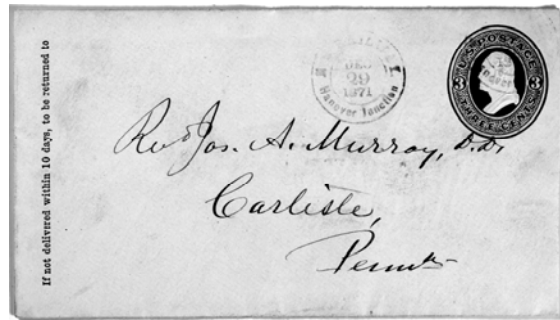 If not delivered within 10 days, to be returned to
DEC
29
1871
Hanover Junction
U.S. POSTAGE
3 3
THREE CENTS
Revd Jos. A. Murray, D.D.
Carlisle,
Penna